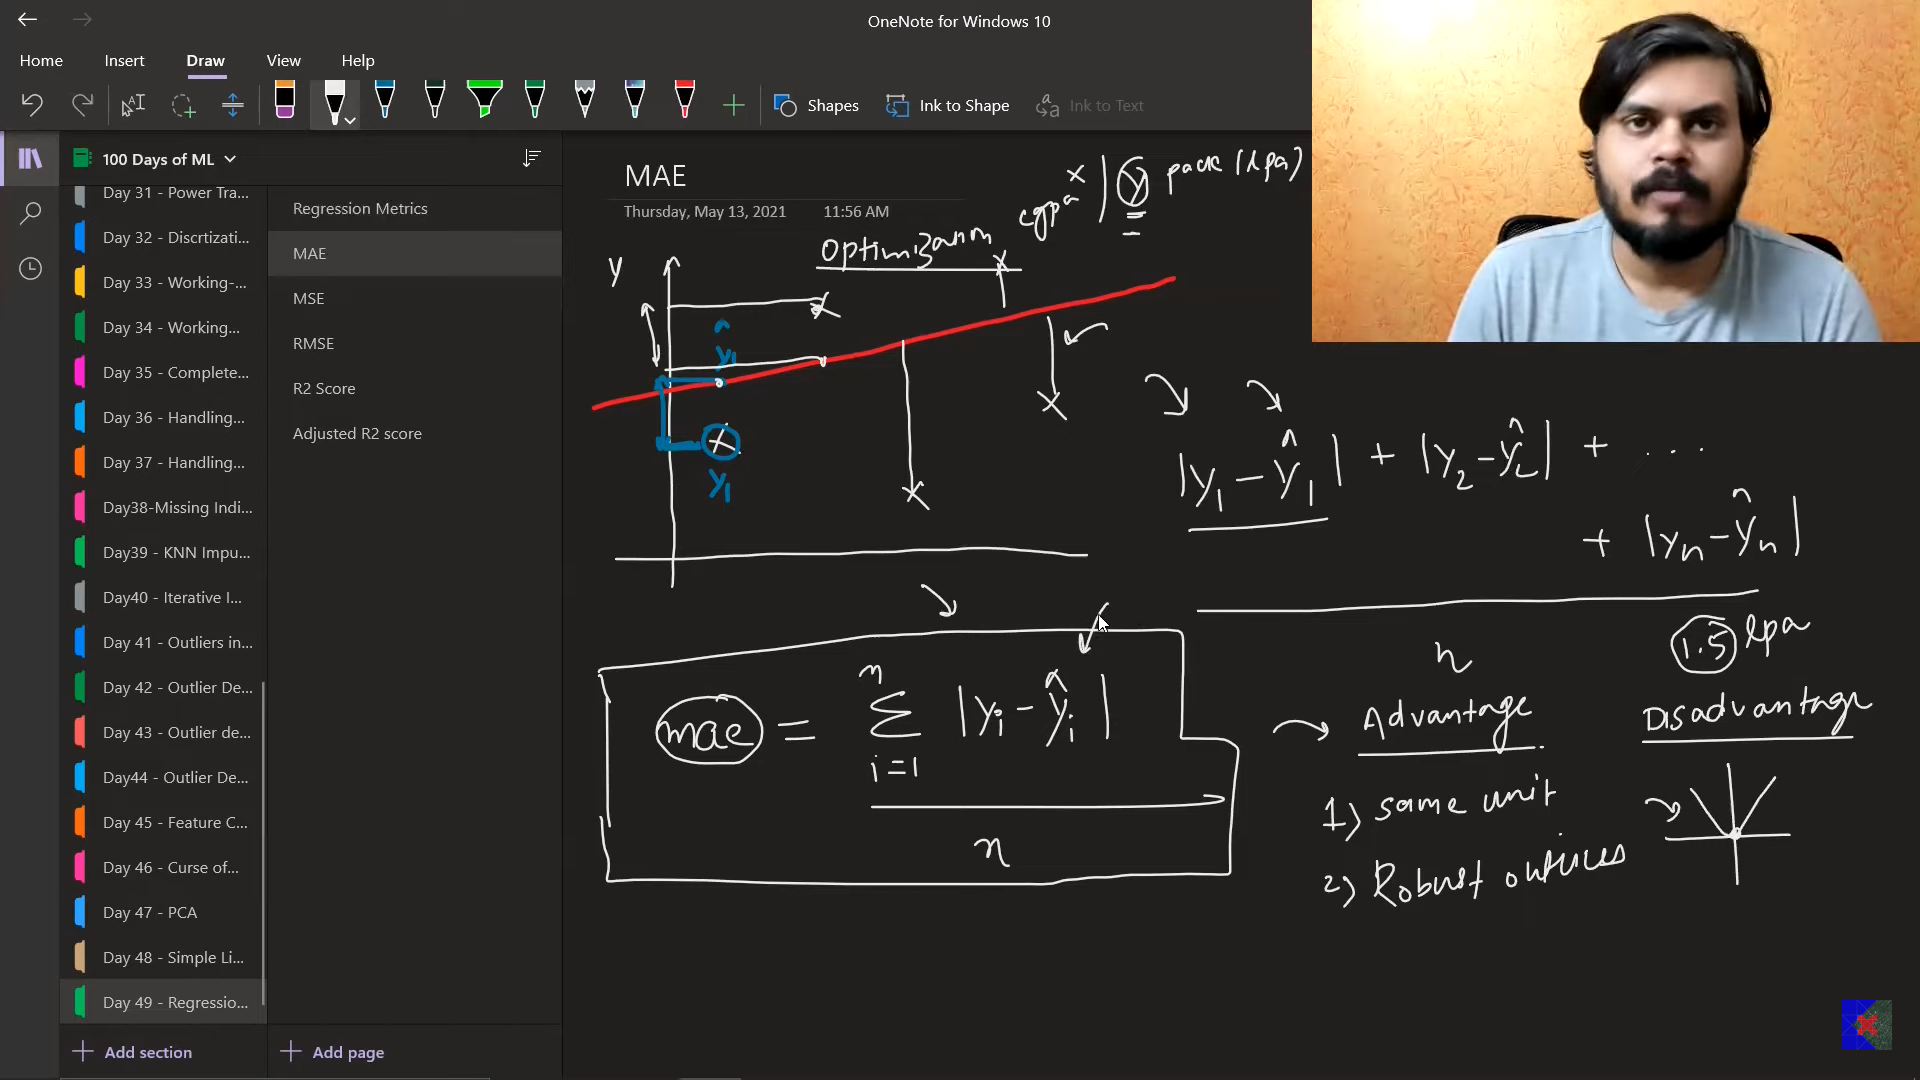 OneNote for Windows 10
Home Insert Draw View Help
Shapes Ink to Shape Ink to Text
100 Days of ML
Day 31 - Power Tra...
Day 32 - Discrtizati...
Day 33 - Working-...
Day 34 - Working...
Day 35 - Complete...
Day 36 - Handling...
Day 37 - Handling...
Day38-Missing Indi...
Day39 - KNN Impu...
Day40 - Iterative I...
Day 41 - Outliers in...
Day 42 - Outlier De...
Day 43 - Outlier de...
Day44 - Outlier De...
Day 45 - Feature C...
Day 46 - Curse of...
Day 47 - PCA
Day 48 - Simple Li...
Day 49 - Regressio...
Add section
Regression Metrics
MAE
MSE
RMSE
R2 Score
Adjusted R2 score
Add page
MAE
Thursday, May 13, 2021 11:56 AM
cgpa x | y pack (lpa)
Optimization
y
ŷ1
y1
|y1 - ŷ1| + |y2 - ŷ2| + ...
+ |yn - ŷn|
n
1.5 lpa
mae = n Σ i=1 |yi - ŷi|
n
Advantage
1) same unit
2) Robust outliers
Disadvantage